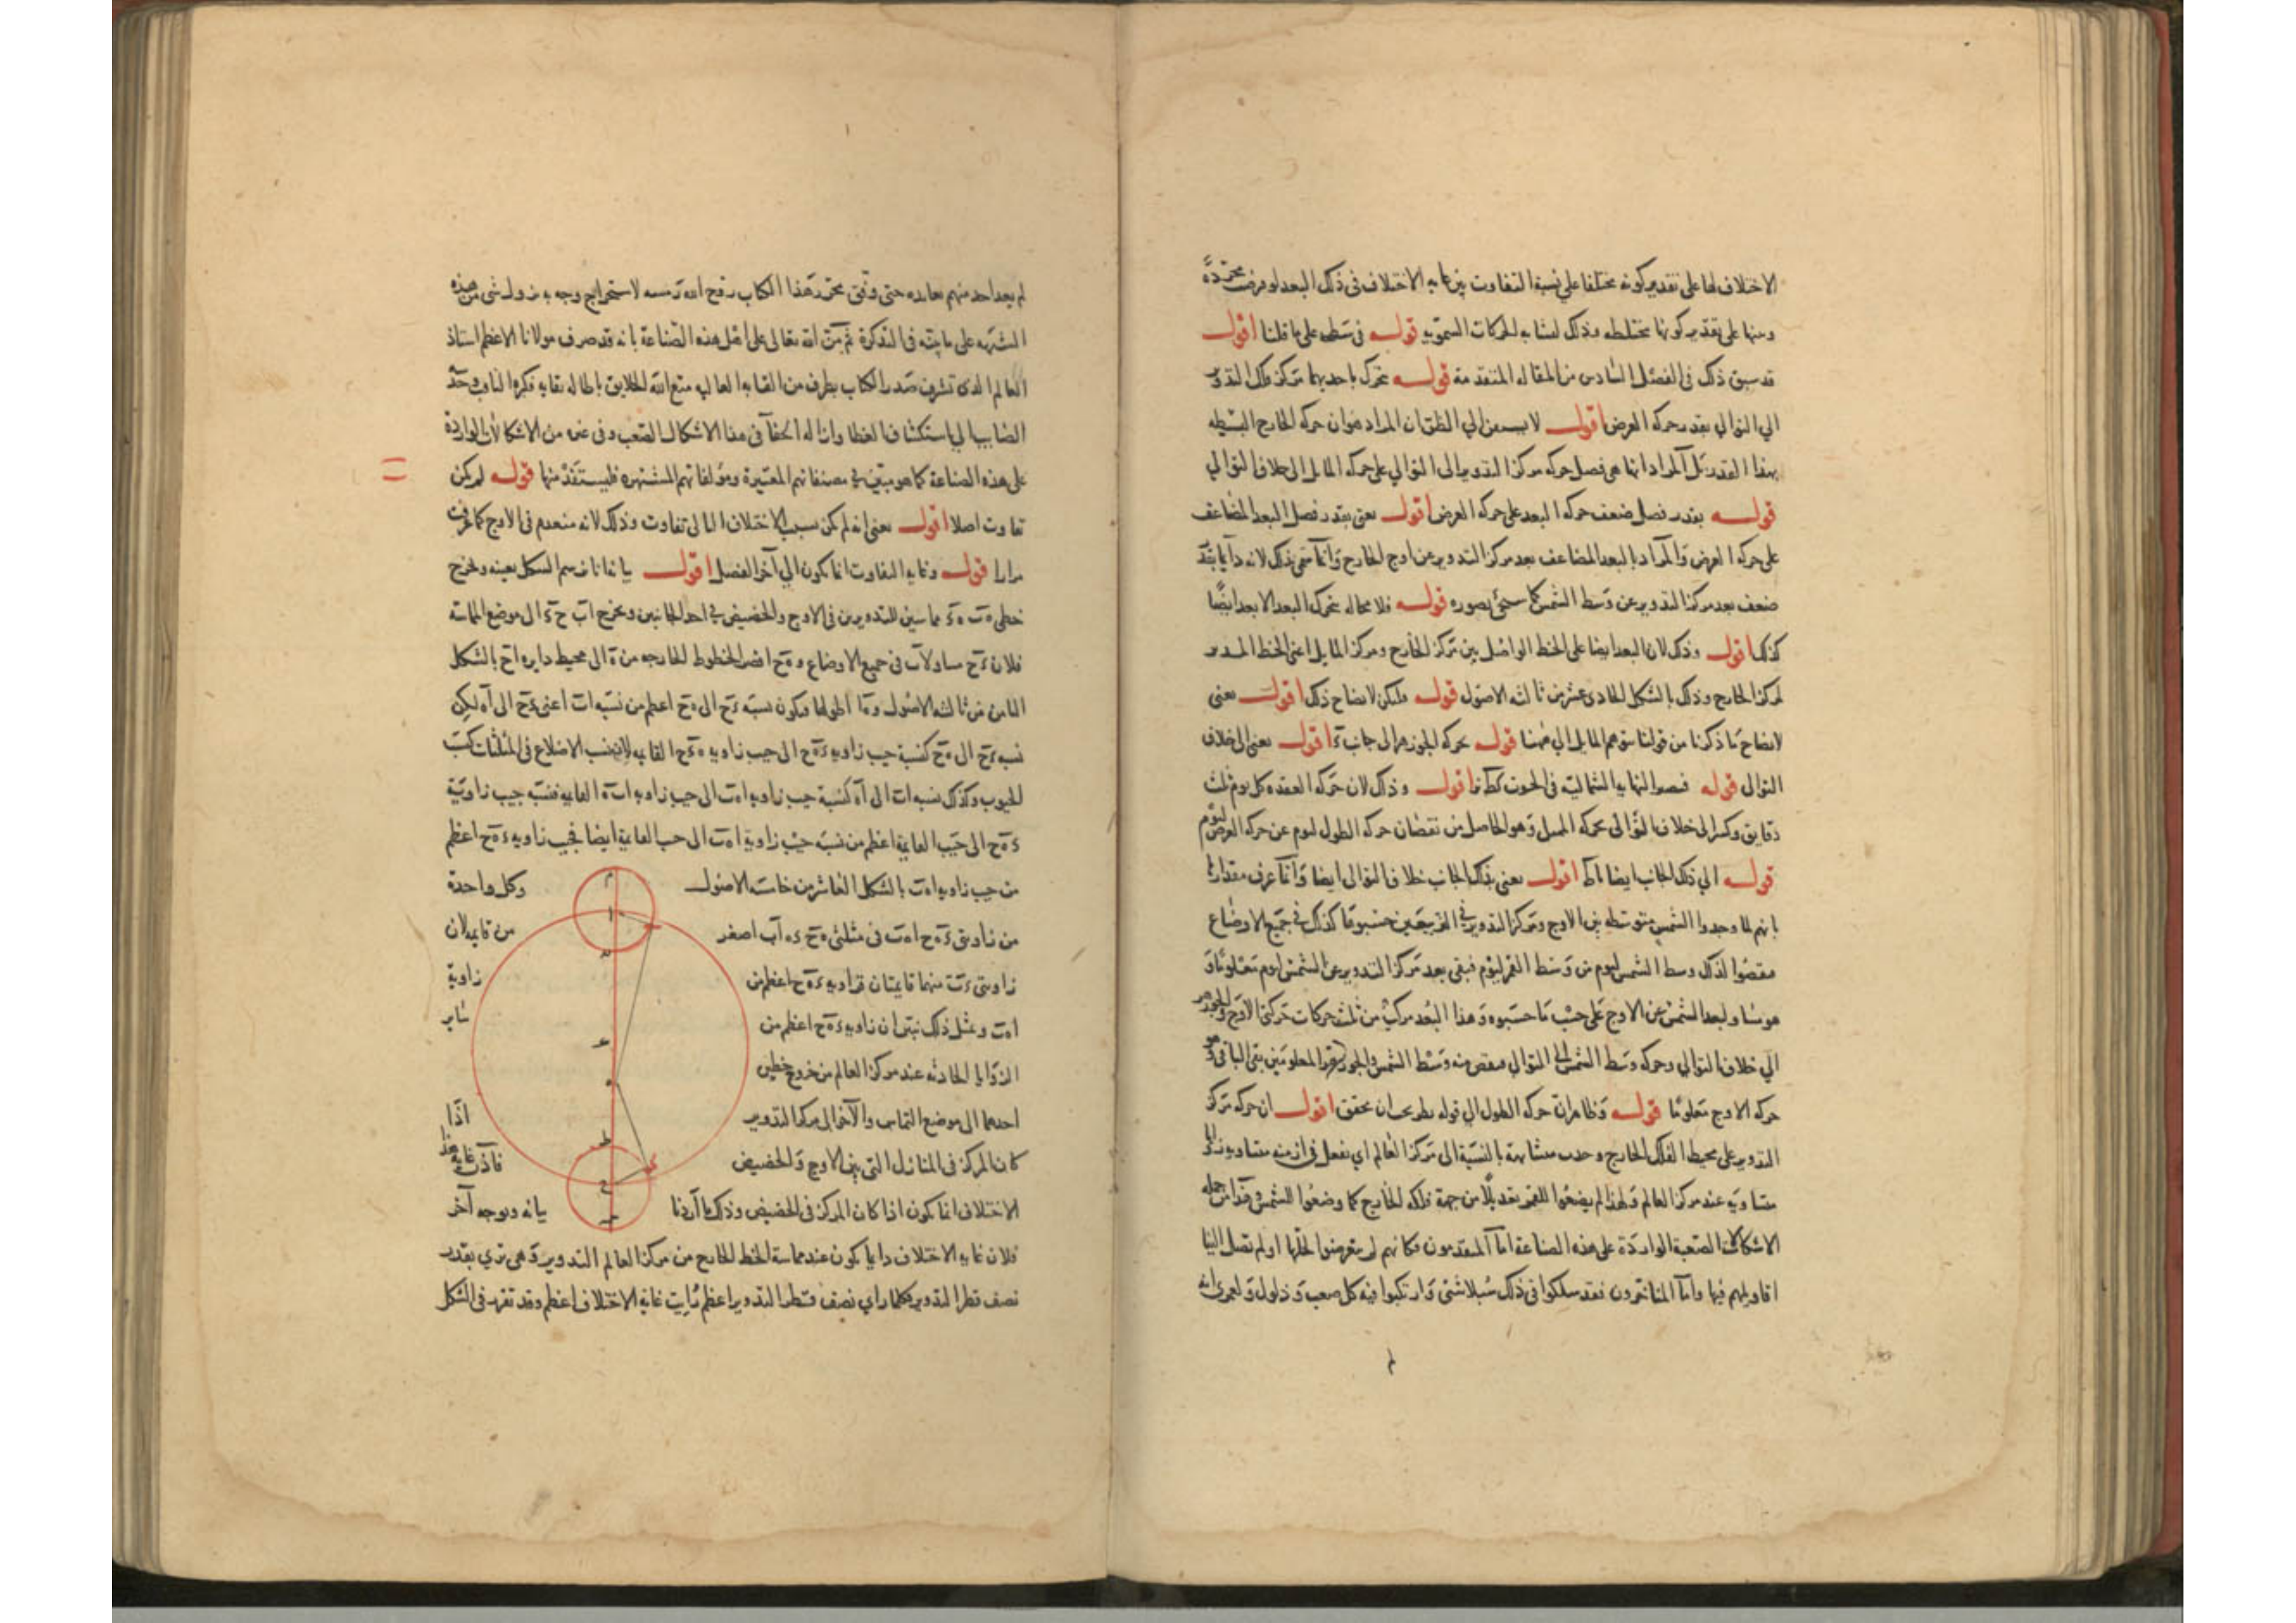 الاختلاف لها على تقدير كونه مختلفا على نسبة التفاوت بين غايه الاختلاف فى ذلك البعد لو فرضت مجردة
ومنها على تقدير كونها مختلطه وذلك لتشابه الحركات السموية قوله فى سطه على ما قلنا اقول
قد سبق ذلك فى الفصل السادس من المقاله المتقدمة قوله تحرك باحديهما مركز فلك التدوير
الى التوالي بقدر حركه العرض اقول لا يسبقن الي الظن ان المراد هو ان حركه الخارج البسيطه
بهذا القدر بل المراد انما هى فصل حركه مركز التدوير الى التوالي على حركه المايل الى خلاف التوالي
قوله بقدر فصل ضعف حركه البعد على حركه العرض اقول يعنى بقدر فصل البعد المضاعف
على حركه العرض والمراد بالبعد المضاعف بعد مركز التدوير عن اوج الخارج وانما سمى بذلك لانه دايما بقدر
ضعف بعد مركز التدوير عن وسط الشمس كما سيجئ تصوره قوله فلا محاله تحرك البعد الابعد ايضا
كذلك اقول وذلك لان البعد ايضا على الخط الواصل بين مركز الخارج ومركز المايل اعنى الخط المدير
لمركز الخارج وذلك بالشكل الحادى عشر من ثالثه الاصول قوله وليكن لايضاح ذلك اقول يعنى
لايضاح ما ذكرنا من قولنا يتوهم المايل الي ههنا قوله بحركه الجوزهر الى جانب اقول يعنى الى خلاف
التوالى قوله فتصير النهايه الشمالية فى الحوت اقول وذلك لان حركه العقده كل يوم ثلث
دقايق وكسر الى خلاف التوالى بحركه الممثل وهو الحاصل من نقصان حركه الطول ليوم عن حركه العرض ليوم
قوله الي ذلك الجانب ايضا اقول يعنى بذلك الجانب خلاف التوالى ايضا وانما عرف مقدارها
بانهم لما وجدوا الشمس متوسطه بين الاوج ومركز التدوير فى التربيعين حسبوها كذلك فى جميع الاوضاع
فنقصوا لذلك وسط الشمس ليوم من وسط القمر ليوم فبقى بعد مركز التدوير عن الشمس ليوم معلوما و
هو مساو لبعد الشمس عن الاوج على حسب ما حسبوه وهذا البعد مركب من ثلث حركات حركتى الاوج والجوزهر
الي خلاف التوالي وحركه وسط الشمس الى التوالي فنقص منه وسط الشمس والجوزهر المعلومين بقى الباقى وهو
حركه الاوج معلوما قوله وظاهر ان حركه الطول الي قوله نظر يجب ان يحقق اقول ان حركه مركز
التدوير على محيط الفلك الخارج وجدت متشابهة بالنسبة الى مركز العالم اي يفعل فى ازمنه متساويه زوايا
متساويه عند مركز العالم ولهذا لم يضعوا للقمر تعديلا من جهة فلكه الخارج كما وضعوا للشمس وهذا من جمله
الاشكالات الصعبة الواردة على هذه الصناعة اما المتقدمون فكانهم لم يتعرضوا لحلها او لم تصل الينا
اقاويلهم فيها واما المتاخرون فقد سلكوا فى ذلك سبلا شتى وارتكبوا فيه كل صعب وذلول ولعمرى انه
لم يعد احد منهم بفايده حتى وفق محرر هذا الكتاب روح الله رمسه لاستخراج وجه به يزول شى من هذه
الشبهه على ما بينه فى التذكرة ثم من الله تعالى على اهل هذه الصناعة بانه قد صرف مولانا الاعظم استاذ
العالم الذى تشرف صدر الكتاب بطرف من القابه العاليه متع الله الخلايق باطاله بقايه فكره الثاقب وحد
الصايب الى استكشاف الغطا وازاله الخفا فى هذا الاشكال الصعب وفى غيره من الاشكالات الواردة
على هذه الصناعة كما هو مبين في مصنفاتهم المعتبرة ومؤلفاتهم المشتهره فليستفد منها قوله لم يكن
تفاوت اصلا اقول يعنى انه لم يكن بسبب الاختلاف الثانى تفاوت وذلك لانه منعدم فى الاوج كما عرفت
مرارا قوله وغايه التفاوت انما يكون الي آخر الفصل اقول بيانه انا نرسم الشكل بعينه ونخرج
خطى مماسين للتدويرين فى الاوج والحضيض في احد الجانبين ونخرج الى موضع المماسه
فلان مساو لآب فى جميع الاوضاع و ه ح اقصر الخطوط الخارجه من ه الى محيط دايره بالشكل
الثامن من ثالثه الاصول و ه ا اطولها فيكون نسبة الى ه ح اعظم من نسبه اب اعنى الى اه لكن
نسبه الى ه ح كنسبة جيب زاويه الى جيب زاويه القايمه لان نسب الاضلاع فى المثلثات كنسب
الجيوب وكذلك نسبه اب الى اه كنسبة جيب زاويه الى جيب زاويه القايمه فنسبه جيب زاوية
الى جيب القايمة اعظم من نسبه جيب زاوية الى جيب القايمة ايضا فجيب زاويه اعظم
من جيب زاويه بالشكل العاشر من خامسه الاصول وكل واحدة
من زاويتى فى مثلثى اصغر من قايمه لان
زاويتى منهما قايمتان فزاويه اعظم من زاوية
وبمثل ذلك نبين ان زاويه اعظم من ساير
الزوايا الحادثه عند مركز العالم من خروج خطين
احدهما الى موضع التماس والآخر الى مركز التدوير اذا
كان المركز فى المنازل التى بين الاوج والحضيض فاذن غايه هذا
الاختلاف انما يكون اذا كان المركز فى الحضيض وذلك ما اردنا بيانه وبوجه آخر
فلان غايه الاختلاف دايما يكون عند مماسة الخط الخارج من مركز العالم التدوير وهى ترى بقدر
نصف قطر التدوير فكلما راي نصف قطر التدوير اعظم رأيت غاية الاختلاف اعظم وقد تقرر فى الشكل